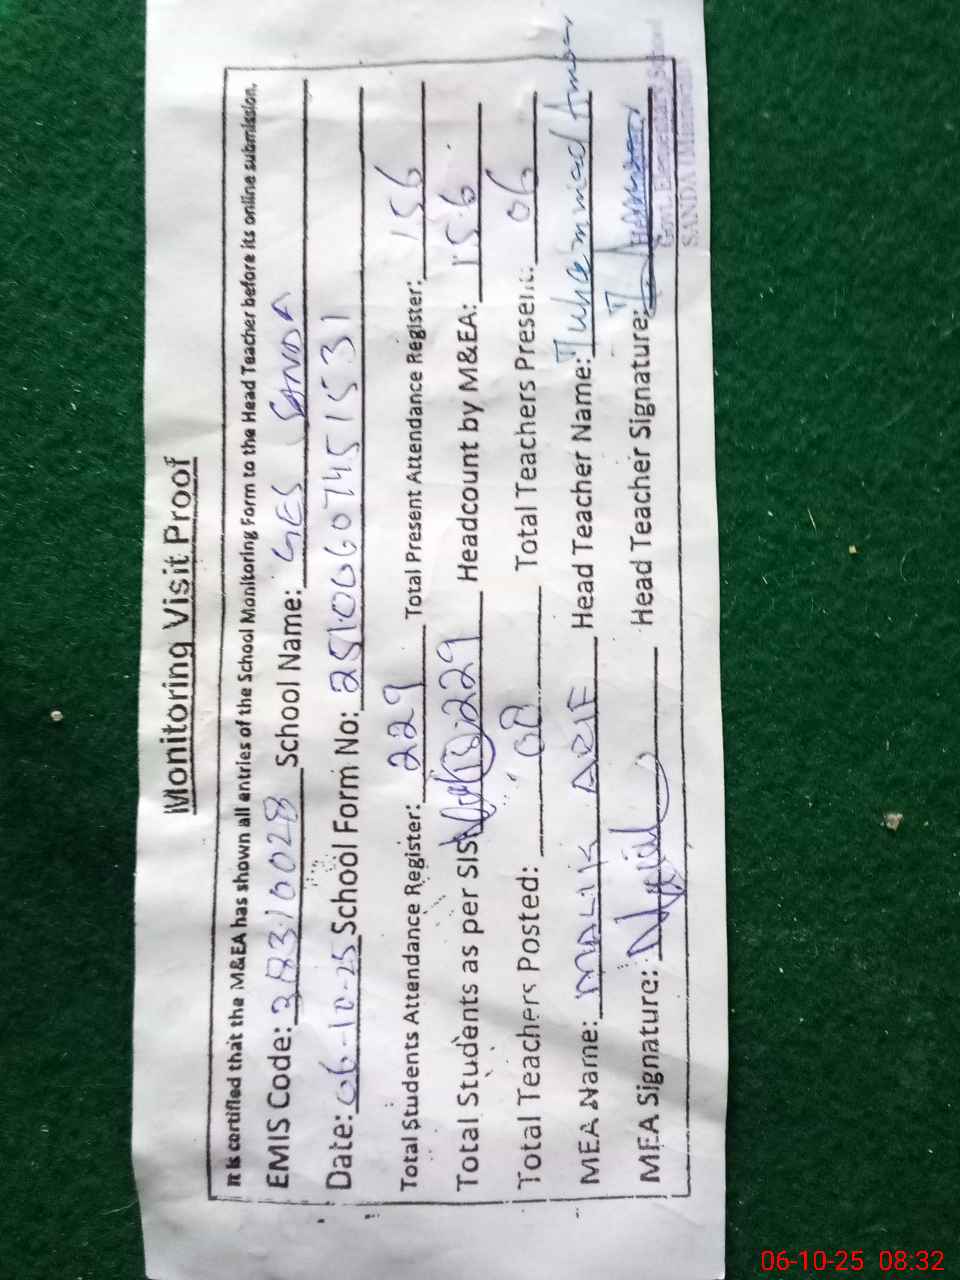 Monitoring Visit Proof
It is certified that the M&EA has shown all entries of the School Monitoring Form to the Head Teacher before its online submission.
EMIS Code: 38310028 School Name: GES SANDA
Date: 06-10-25 School Form No: 2510060745151531
Total Students Attendance Register: 229 Total Present Attendance Register: 156
Total Students as per SIS: 229 Headcount by M&EA: 156
Total Teachers Posted: 08 Total Teachers Present: 06
MEA Name: MALIK ARIF Head Teacher Name: Muhammad
MEA Signature: Head Teacher Signature:
Govt. Elementary School
SANDA
06-10-25 08:32